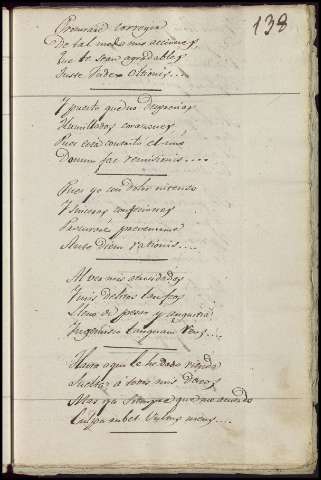 138
Procuraré corregir
De tal modo mis acciones,
Que te sean agradables
Juste Judex ultionis....
Y puesto que no desprecias
Humillados corazones
Pues está contrito el mio
Donum fac remisionis....
Pues yo con dolor intenso
Y sinceras confesiones
Procuraré prevenirme
Ante Diem rationis....
Al ver mis atrocidades
Y mis delitos tan feos
Lleno de pesar y angustia
Ingemisco tanquam reus...
Hasta aqui le he dado rienda
Suelta a todos mis deseos
Mas ya siempre que me acuerdo
Culpa rubet vultus meus....